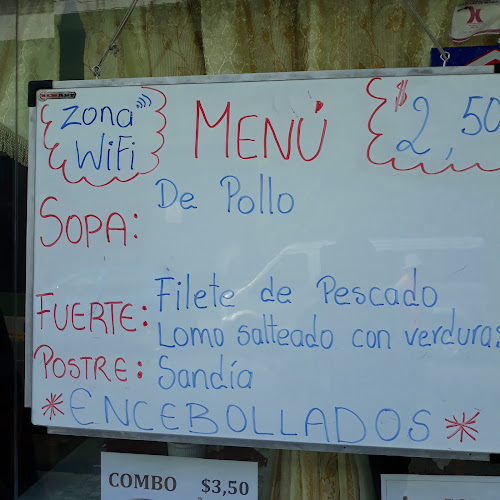 Zona WiFi
MENÚ
$2,50
SOPA: De Pollo
FUERTE: Filete de Pescado
Lomo salteado con verduras
POSTRE: Sandía
*ENCEBOLLADOS*
COMBO $3,50